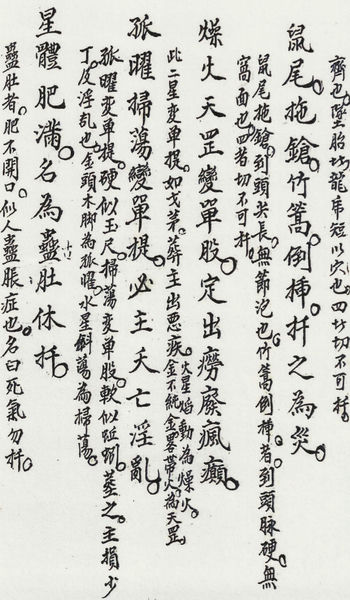 齊也。墜胎均龍虎短以穴也。四者切不可扦。
鼠尾拖鎗。竹篙倒挿。扦之為災。
鼠尾拖鎗。到頭尖長。無節泡也。竹篙倒挿者。到頭脉硬。無
窩面也。四者切不可扦。
燥火天罡變單股。定出癆廢瘋癲。
此二星变单提。如戈茅。葬主出恶疾。火星焰動為燥火。金不純金畧帶火為天罡。
孤曜掃蕩變單提。必主夭亡淫亂。
孤曜变单提。硬似玉尺。掃蕩变单股。軟似蚯蚓。葬之主損少
丁。及淫乱也。金頭木脚為孤曜。水星斜蕩為掃蕩。
星體肥滿。名為蠱肚休扦。
蠱肚者。肥不開口。似人蠱脹症也。名曰死氣。勿扦。